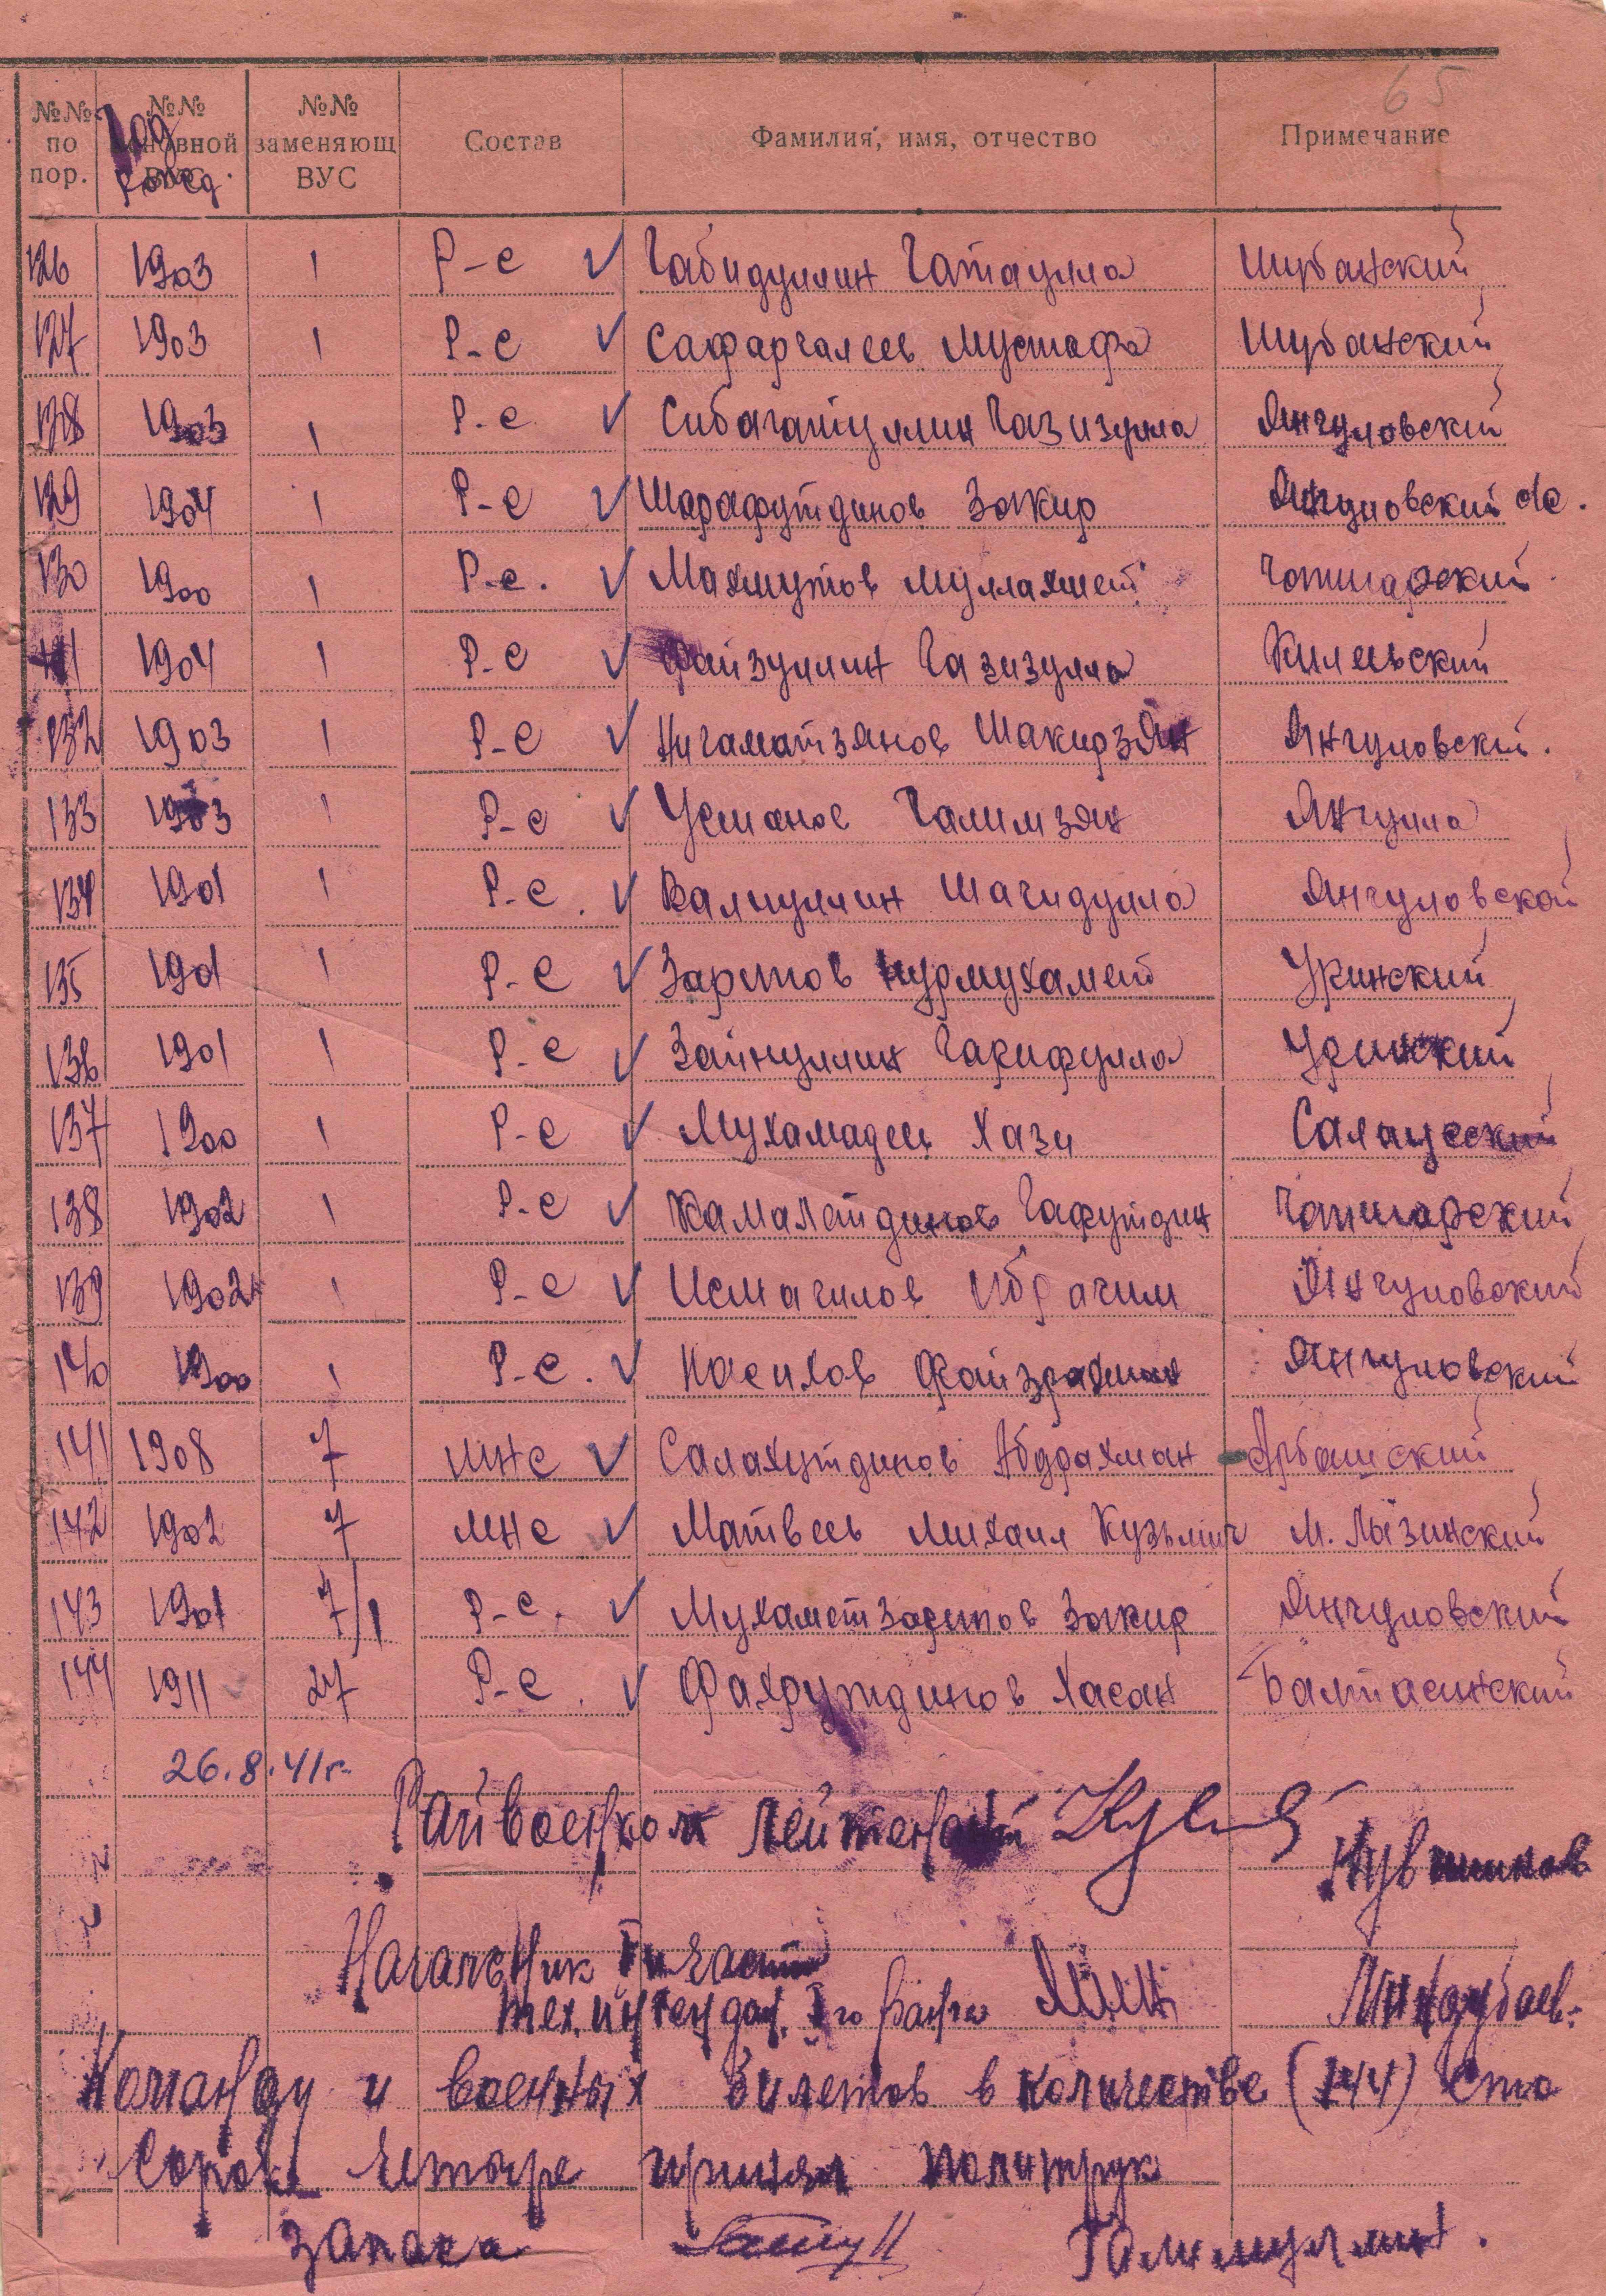 65
№№ по пор. №№ основной ВУС Год рожд. №№ заменяющ ВУС Состав Фамилия, имя, отчество Примечание
126 1903 1 Р-с Габидуллин Гатаулла Шубанский
127 1903 1 Р-с Сафаргалеев Мустафа Шубанский
128 1903 1 Р-с Сибагатуллин Газизулла Янгуловский
129 1904 1 Р-с Шарафутдинов Закир Янгуловский
130 1900 1 Р-с. Махмутов Муллахмет Чапшарский
131 1904 1 Р-с Файзуллин Газизулла Килеевский
132 1903 1 Р-с Нигаматзянов Шакирзян Янгуловский.
133 1903 1 Р-с Усманов Галимзян Янгулла
134 1901 1 Р-с. Валиуллин Шагидулла Янгуловской
135 1901 1 Р-с Зарипов Нурмухамет Уринский
136 1901 1 Р-с Зайнуллин Гарифулла Уринский
137 1900 1 Р-с Мухамадеев Хази Салаусский
138 1902 1 Р-с Камалетдинов Гафутдин Чапшарский
139 1902 1 Р-с Исмагилов Ибрагим Янгуловский
140 1900 1 Р-с. Насихов Файзрахман Янгуловский
141 1908 7 мнс Салахутдинов Абдрахман Арбашский
142 1902 7 мнс Матвеев Михаил Кузьмич М. Лызинский
143 1901 7/1 Р-с. Мухаметзарипов Закир Янгуловский
144 1911 27 Р-с. Фахрутдинов Хасан Балтасинский
26.8.41г.
Райвоенком лейтенант Кувшинов
Начальник части
тех. интендант I го ранга
Команду и военных билетов в количестве (144) сто
сорок четыре принял политрук
запаса Галимуллин.